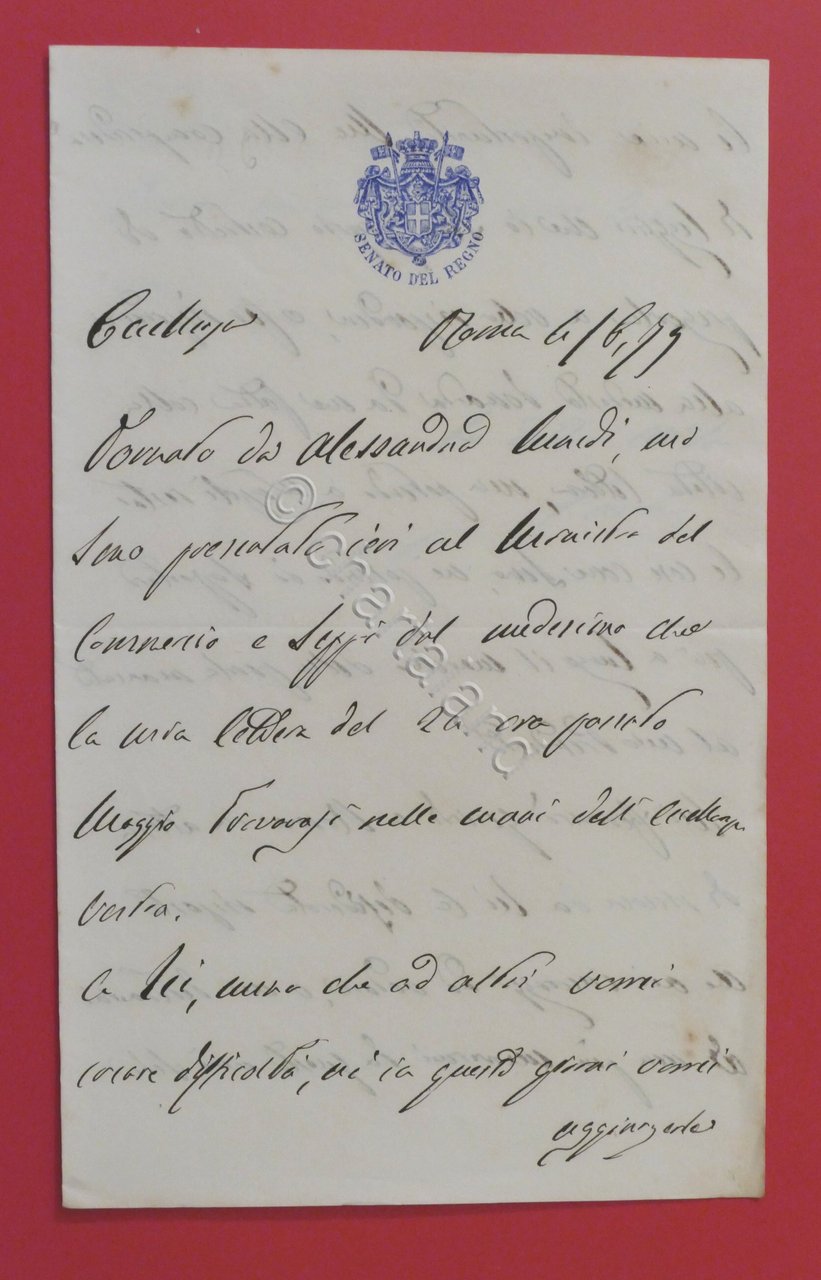 SENATO DEL REGNO
Eccellenza Roma 4/6,79
Tornato da Alessandria lunedì, mi
sono presentato ieri al Ministro del
Commercio e seppi dal medesimo che
la mia lettera del 24 ora passato
Maggio trovavasi nelle mani dell'Eccellenza
Vostra.
A Lei, meno che ad altri vorrei
creare difficoltà, nè in questi giorni vorrei
aggiungerle
© chartaland